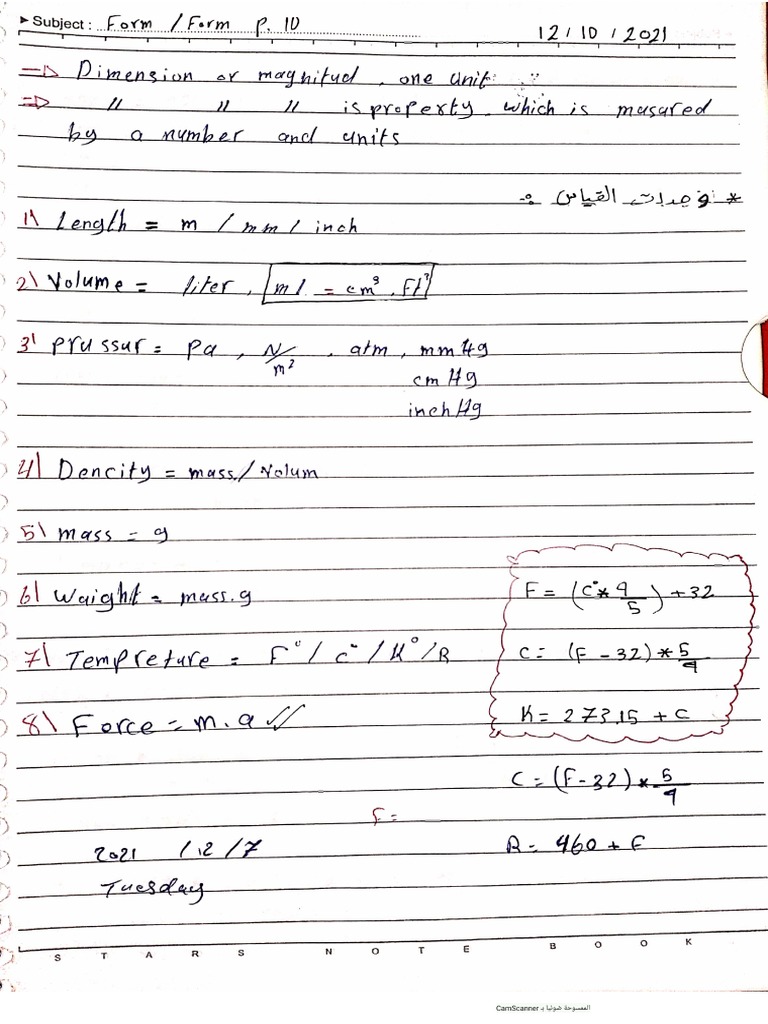 ► Subject : Form / Form P. 10
12 / 10 / 2021
⇒ Dimension or magnitud, one unit
⇒ " " " is property, which is masured
by a number and units
* وحدات القياس :-
1\ Length = m / mm / inch
2\ Volume = liter, ml = cm³, Ft³
3\ prassur = Pa, N/m², atm, mmHg
cm Hg
inch Hg
4\ Dencity = mass / Volum
5\ mass = g
6\ Waight = mass.g
7\ Tempreture = F° / c° / K° / R
8\ Force = m.a ✓✓
F = (C° * 9/5) + 32
C = (F - 32) * 5/9
K = 273.15 + C
C = (F - 32) * 5/9
F =
R = 460 + F
2021 / 12 / 7
Tuesday
STARS NOTE BOOK
الممسوحة ضوئيا بـ CamScanner